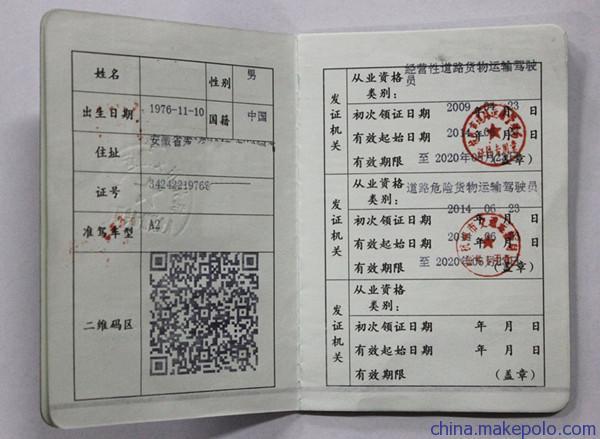 姓名 性别 男
出生日期 1976-11-10 国籍 中国
住址 安徽省
证号 34242219768
准驾车型 A2
二维码区
发证机关
从业资格类别: 经营性道路货物运输驾驶员
初次领证日期 2009 年 04 月 23 日
有效起始日期 2014 年 月 日
有效期限 至 2020年 月 日 (盖章)
发证机关
从业资格类别: 道路危险货物运输驾驶员
初次领证日期 2014 年 06 月 23 日
有效起始日期 年 06 月 日
有效期限 至 2020年06月 日 (盖章)
发证机关
从业资格类别:
初次领证日期 年 月 日
有效起始日期 年 月 日
有效期限 (盖章)
china.makepolo.com